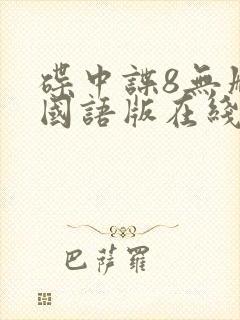 碟中諜8無
國語版在綫
巴薩羅